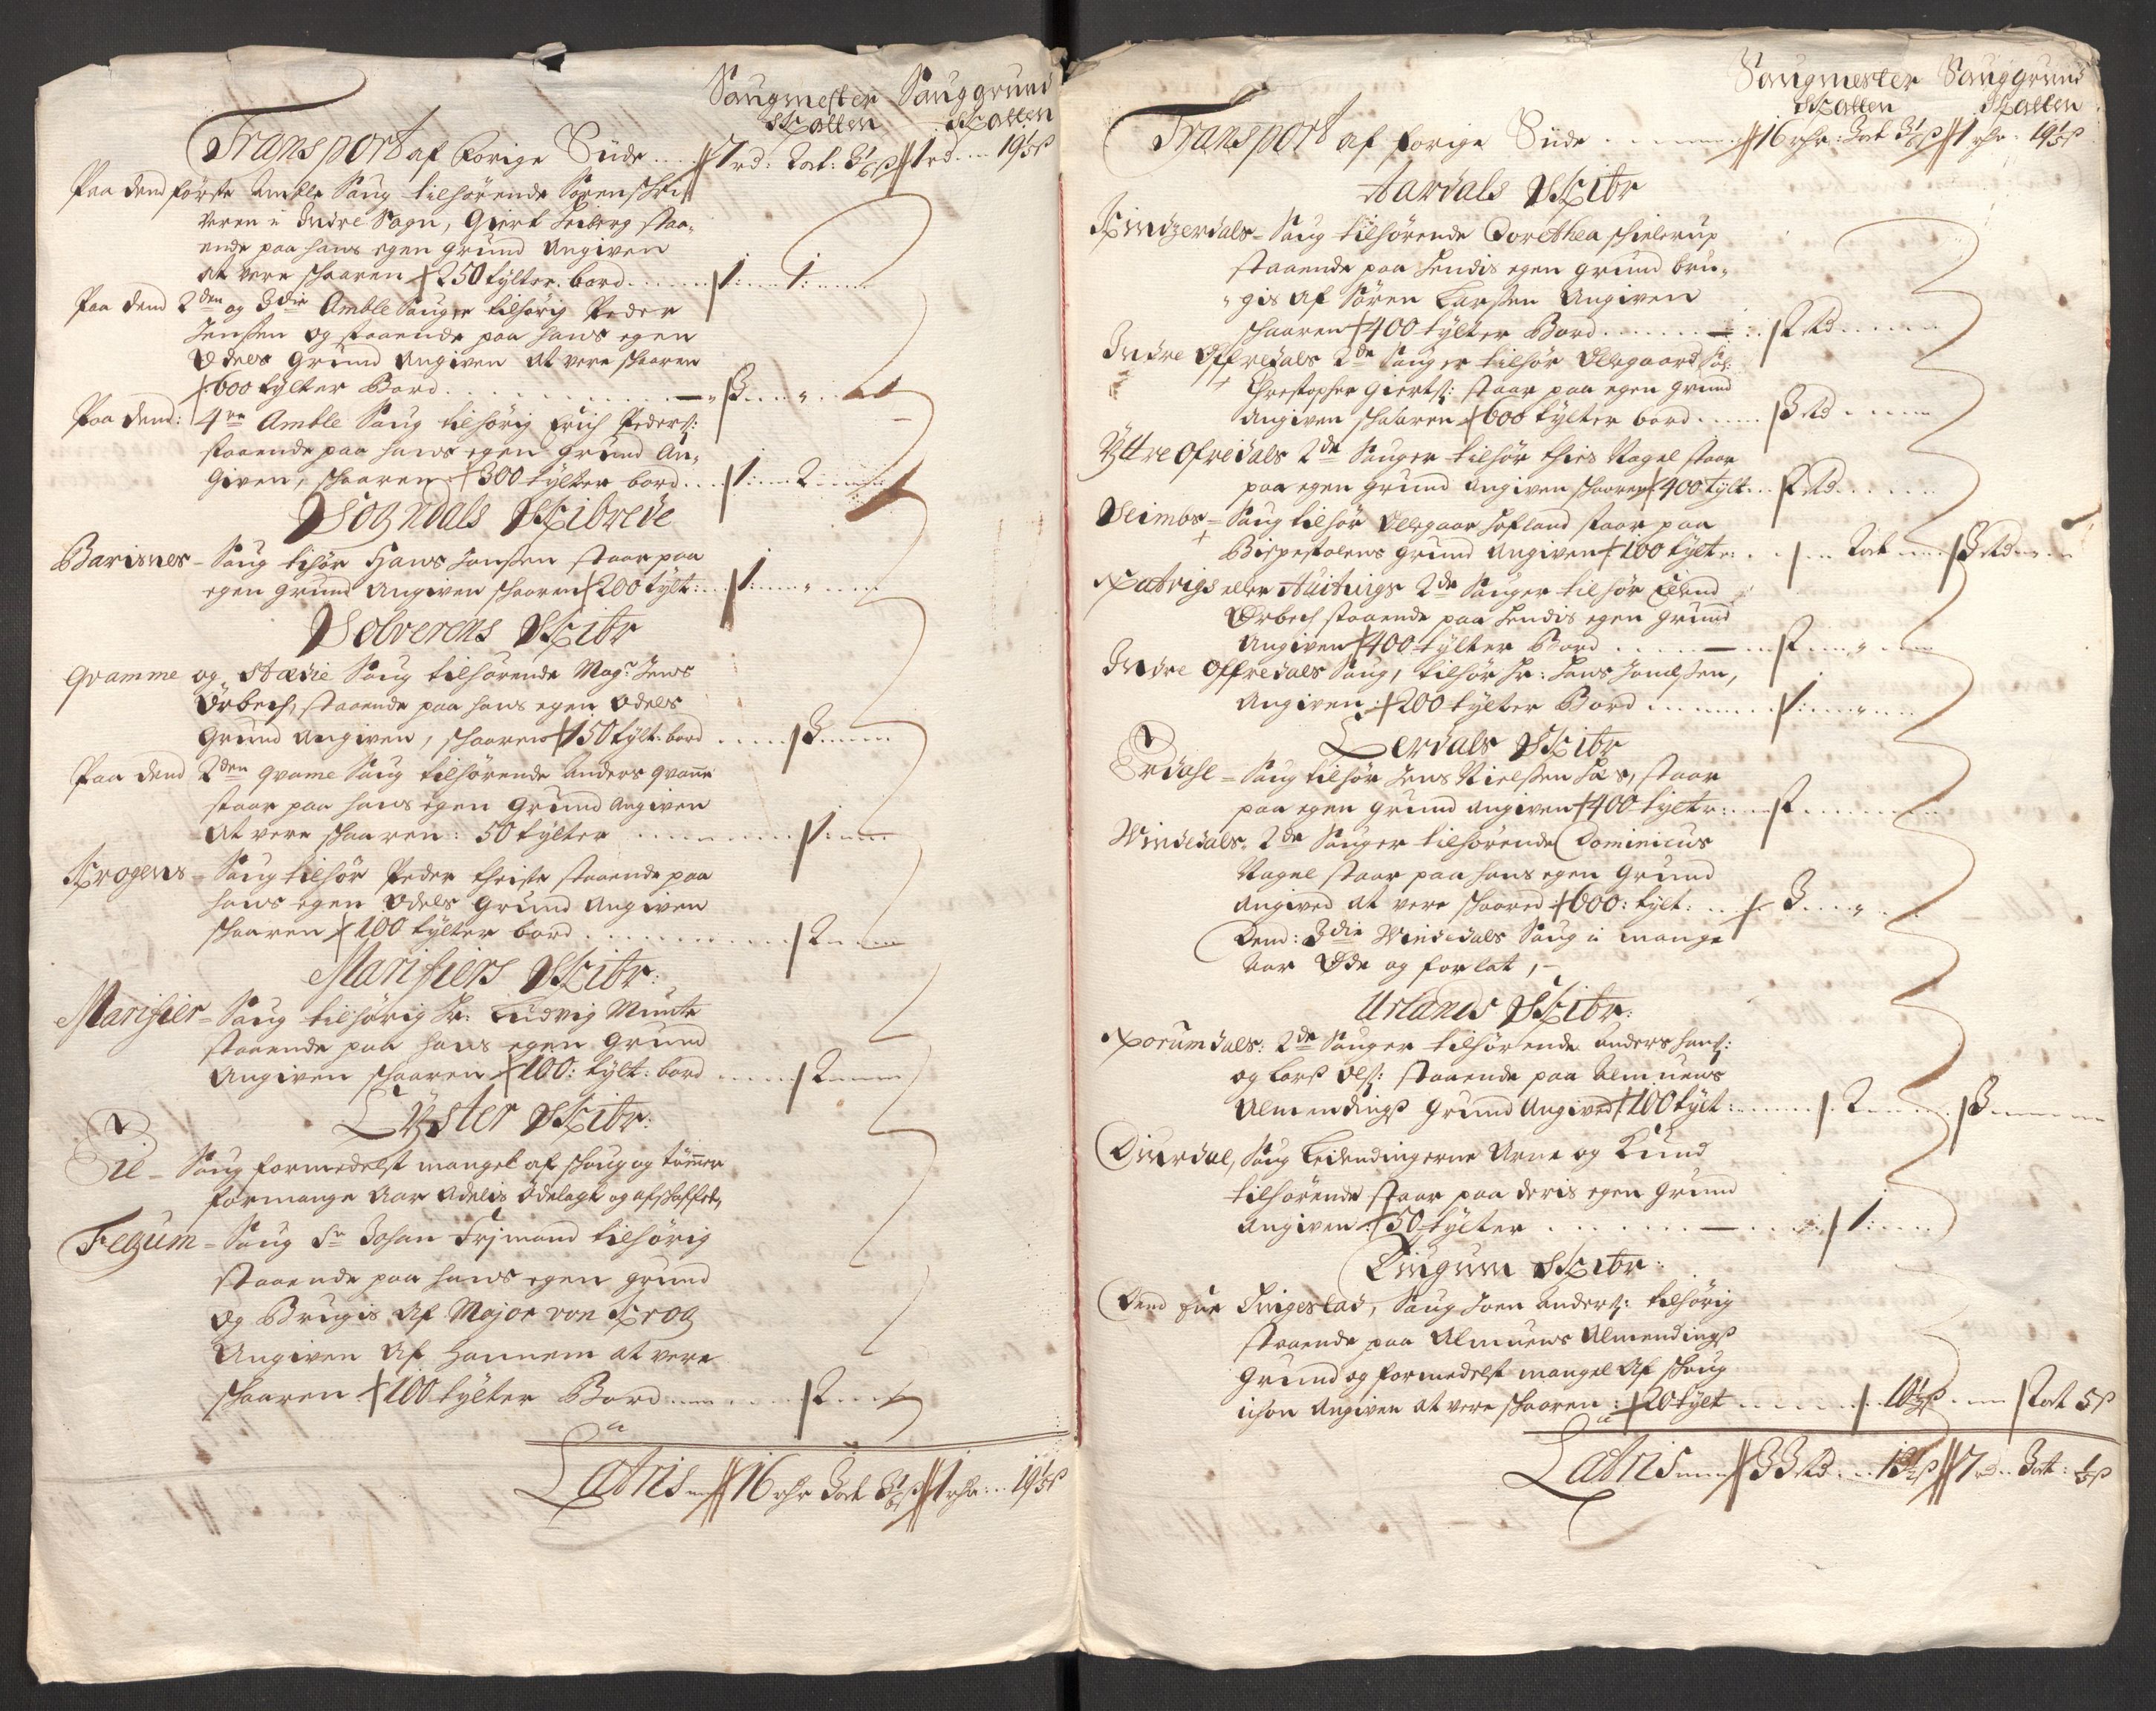 Saugmester Sauggrund
Skatten Skatten
Transport af forige Side 7 rd: 2 ort: 3 1/6 ß 1 rd 19 1/5 ß
Paa dend første Amble Saug tilhørende Sorenskri
veren i Indre Sogn, Giert Leiberg staa,
ende paa hans egen grund Angiven
at vere skaaren 250 tylter bord 1: 1:
Paa dend 2den og 3die Amble Sauger tilhørig Peder
Jenssen og staaende paa hans egen
Odels Grund Angiven at vere skaaren
600 tylter Bord 3
Paa dend: 4re Amble Saug tilhørig Erich Peders:
staaende paa hans egen grund An,
given, skaaren 300 tylter bord 1: 2
Sogndals Skibrede
Barisnes - Saug tilhør Hans Jansen staar paa
egen grund Angiven skaaren 200 tylt: 1:
Solverens Skibr
Qvamme og Stædie Saug tilhørende Mag.r Jens
Ørbech, staaende paa hans egen Odels
Grund Angiven, skaaren 150 tylt: bord 3
Paa dend 2den qvame Saug tilhørende Anders qvame
staar paa hans egen Grund Angiven
at vere skaaren: 50 tylter 1:
Krogens - Saug tilhør Peder Christe staaende paa
hans egen Odels Grund Angiven
skaaren 100 tylter bord 2
Marifiers Skibr:
Marifier - Saug tilhørig Hr: Ludvig Munte
staaende paa hans egen Grund
Angiven skaaren 100: tylt: bord 2
Lyster Skibr:
Eie - Saug formedelst mangel af skoug og tømmer
for mange Aar Adelis Ødelagt og afskaffet,
Fegum - Saug Sr Johan Frimand tilhørig
staaende paa hans egen grund
og Brugis Af Major von Krog
Angiven Af Hannem at vere
skaaren 100 tylter Bord 2
Lateris 16 rdr 3 ort 3 1/6 ß 1 rdr: 19 1/5 ß
Saugmester Sauggrund
Skatten Skatten
Transport af forige Side 16 rdr: 3 ort 3 1/6 ß 1 rdr: 19 1/5 ß
Aardals Skibr
Kindzerdals - Saug tilhørende Dorethea skielerup
staaende paa hendis egen grund bru,
gis af Søren Larssen Angiven
skaaren 400 tylter Bord 2 Rd
Indre Offredals 2de Sauger tilhør Ollegaard Sal:
Christopher Gierts: staar paa egen grund
Angiven skaaren 600 tylter bord 3 Rd
Yttre Ofredals 2de Sauger tilhør Thies Nagel staar
paa egen grund Angiven skaaren 400 tylt 2 Rd
Seimbs - Saug tilhør Ollegaar Hofland staar paa
Bispestolens grund Angiven 100 tylt: 2 ort 3 Rd
Natvigs eller 2de Sauger tilhør
Ørbech staaende paa hendis egen grund
Angiven 400 tylter Bord 2
Indre Offredals Saug, tilhør Hr: Jens
Angiven: 200 tylter Bord 1:
Lerdals Skibr
Erdahl - Saug tilhør Jens Nielssen Hæs, staar
paa egen grund Angiven 400 tylter: 2
Windedals: 2de Sauger tilhørende Dominicus
Nagel staar paa hans egen Grund
Angived at vere skaared 600: tylt: 3
Dend: 3die Windedals Saug i mange
Aar Øde og forlat,
Urlands Skibr:
2de Sauger tilhørende Anders Hans:
og Lars Ols: staaende paa Almuens
Almendings Grund Angived 100 tylt: 2 3
Diurdal, Saug Leilendingerne Arne og Lund
tilhørende staar paa deris egen Grund
Angiven: 50 tylter 1:
Dingum Skibr:
Dend Frigestad, Saug Joen Anders: tilhørig
staaende paa Almuens Almendings
Grund og formedelst mangel Af skoug
ichon Angiven at vere skaaren: 20 tylt 10 ß 2 ort 5 ß
Lateris 33 Rd 13 ß 7 rd 3 ort: ß